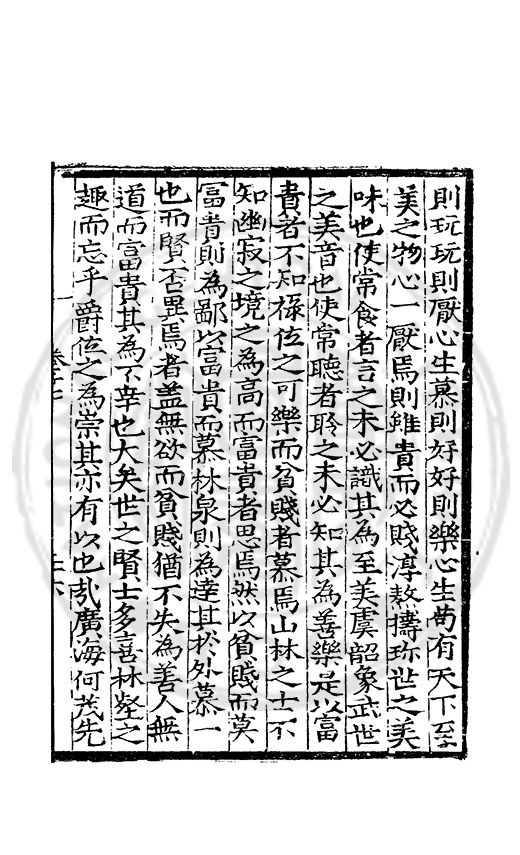 則玩玩則厭心生慕則好好則樂心生茍有天下至
美之物心一厭焉則雖貴而必賤淳熬擣珍世之美
味也使常食者言之未必識其為至美虞韶象武世
之美音也使常聽者聆之未必知其為善樂是以富
貴者不知祿位之可樂而貧賤者慕焉山林之士不
知幽寂之境之為高而富貴者思焉然以貧賤而莫
富貴則為鄙以富貴而慕林泉則為達其於外慕一
也而賢否異焉者盖無欲而貧賤猶不失為善人無
道而富貴其為不幸也大矣世之賢士多喜林壑之
趣而忘乎爵位之為崇其亦有以也㢤廣海何茂先